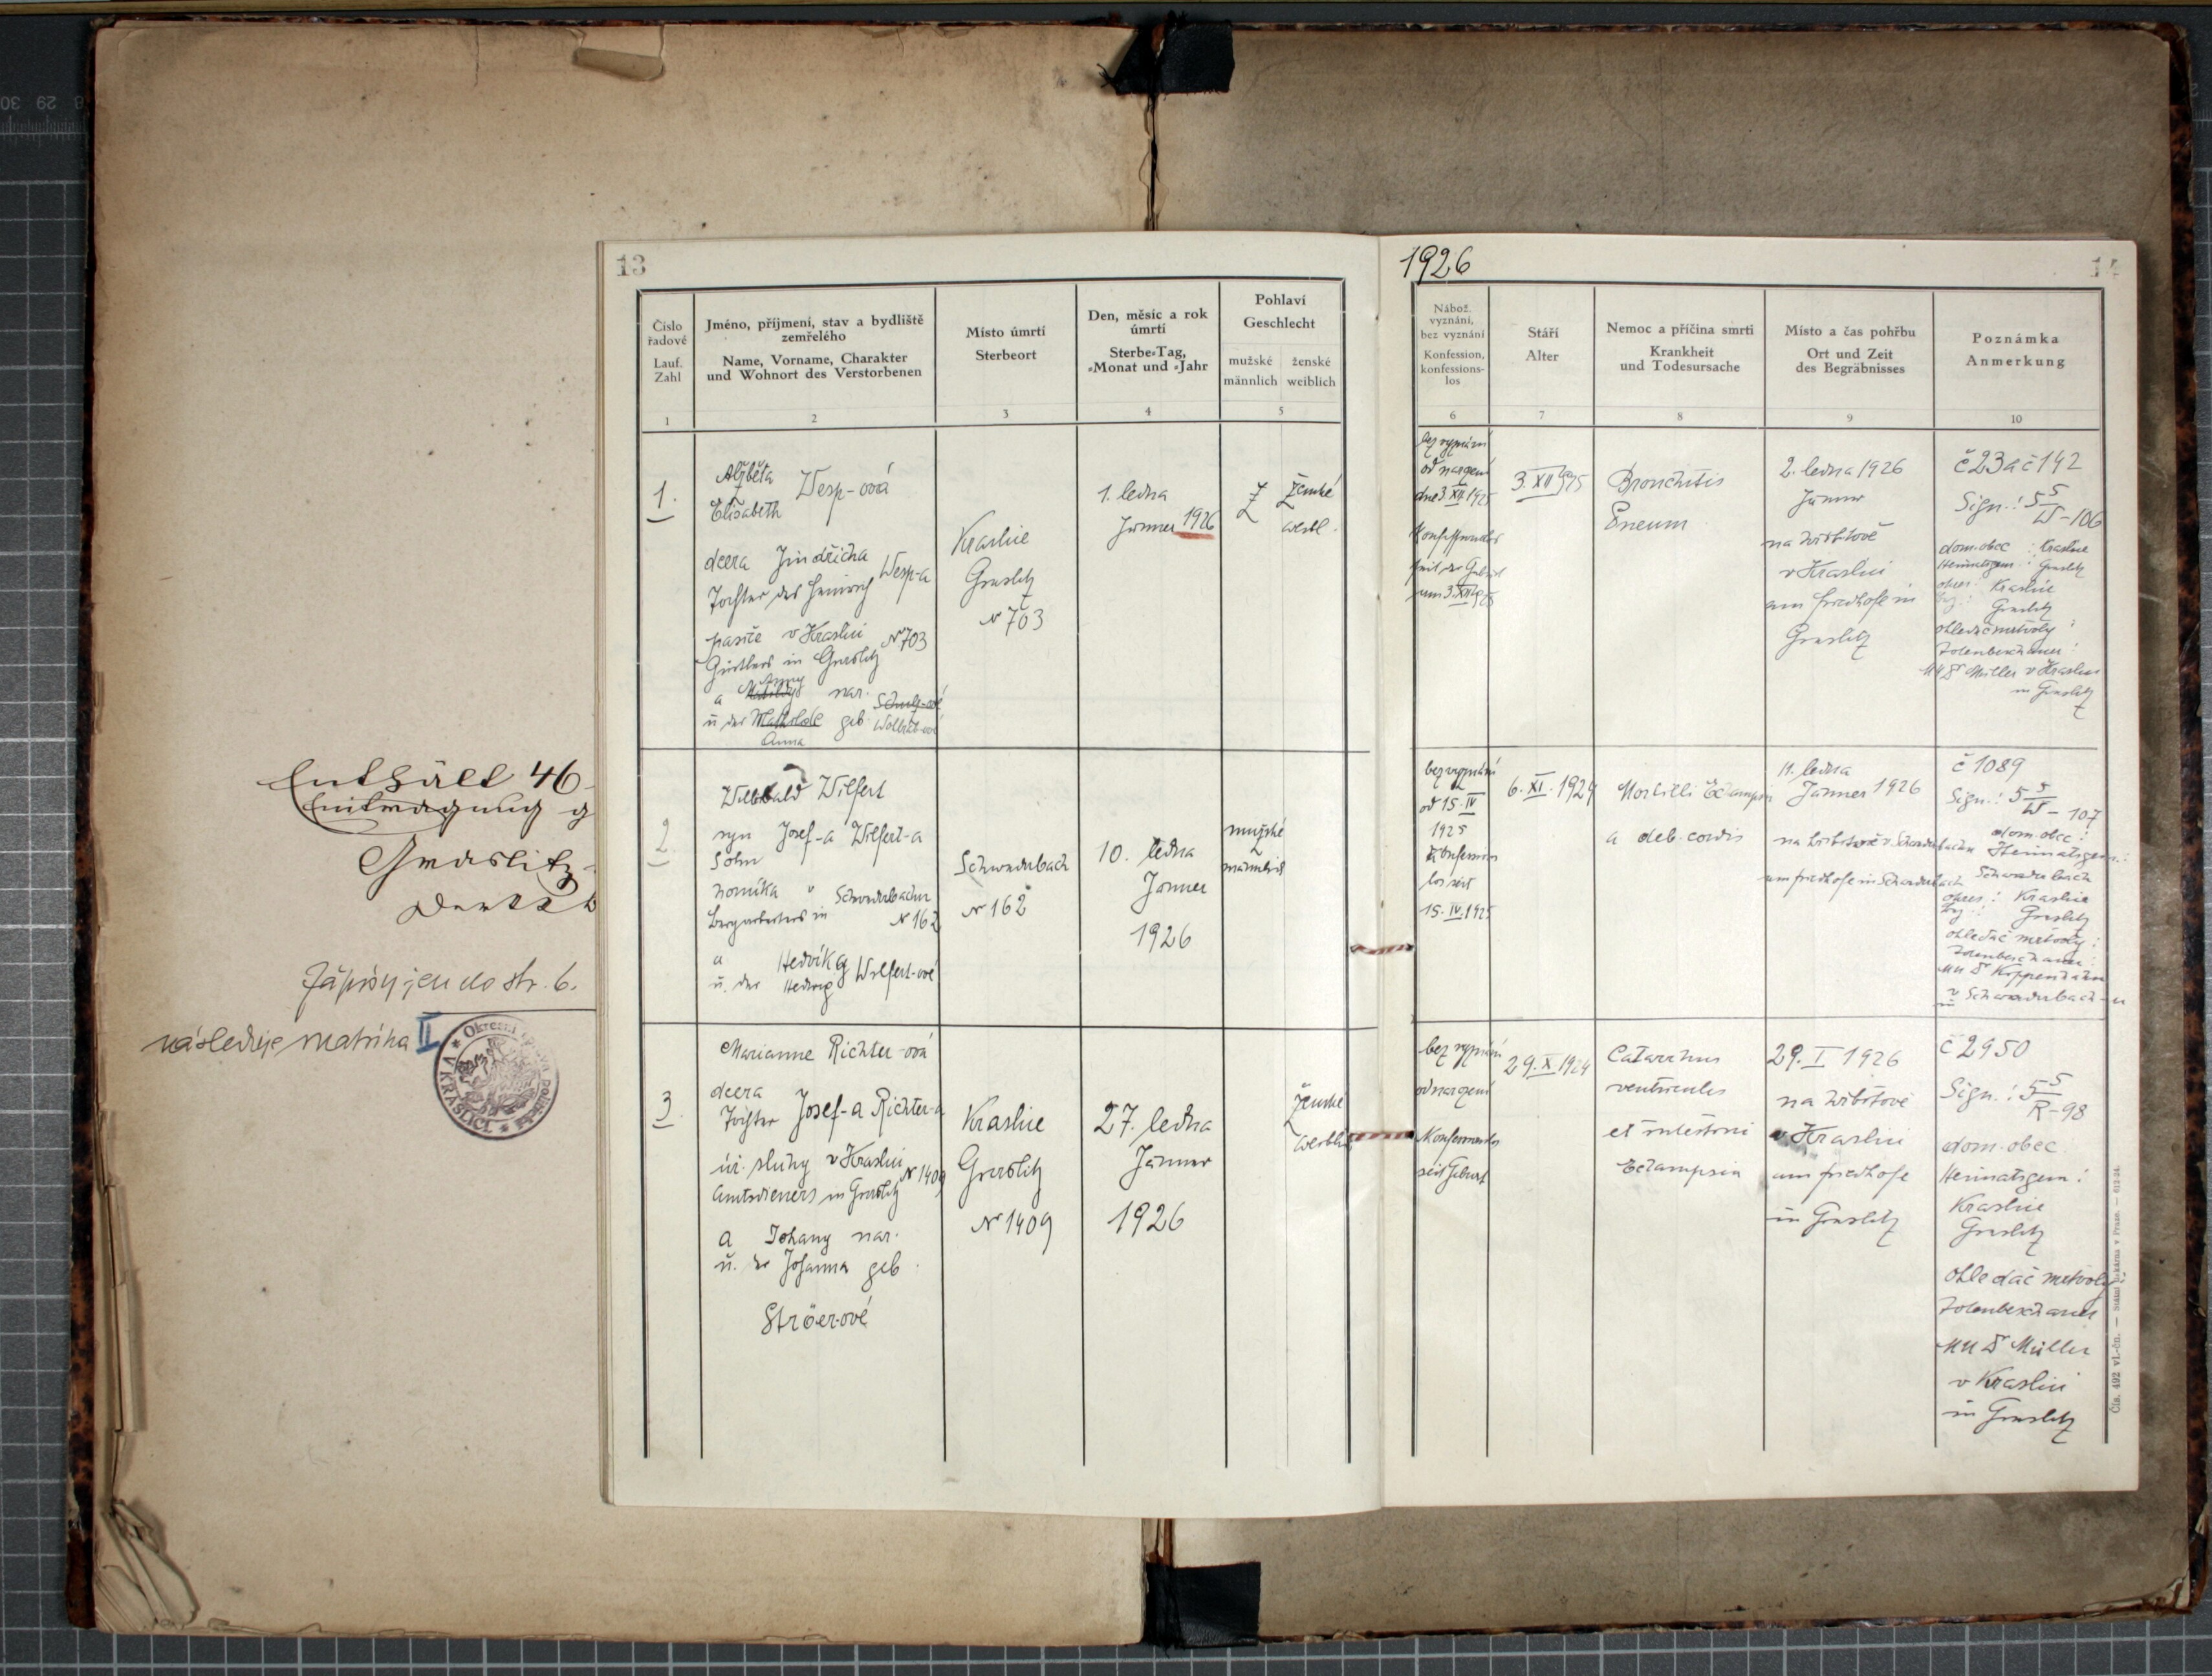 Enthält 46
Eintragung g
Graslitz
Zápisy jen do str. 6.
následuje matrika II
13
Číslo řadové
Lauf. Zahl
Jméno, příjmení, stav a bydliště
zemřelého
Name, Vorname, Charakter
und Wohnort des Verstorbenen
Místo úmrtí
Sterbeort
Den, měsíc a rok
úmrtí
Sterbe-Tag,
-Monat und -Jahr
Pohlaví
Geschlecht
mužské
männlich
ženské
weiblich
1
2
3
4
5
1.
Alžběta
Elisabeth
Wesp-ová
dcera Jindřicha
Tochter des Heinrich
Wesp-a
pasíře v Kraslici
Gürtlers in Graslitz
N 703
a Anny nar.
Schulz-ové
u. der Mathilde geb.
Anna
Kraslice
Graslitz
N 703
1. ledna
Jänner 1926
ženské
weibl.
2
Willibald Wilfert
syn Josef-a Wilfert-a
Sohn
horníka v Schwaderbachu
Bergarbeiters in N 162
a Hedviky
u. der Hedwig
Wilfert-ové
Schwaderbach
N 162
10. ledna
Jänner
1926
mužské
männlich
3
Marianne Richter-ová
dcera
Tochter
Josef-a Richter-a
úř. sluhy v Kraslici
Amtsdieners in Graslitz
N 1409
a Johany nar.
u. der Johanna geb.
Ströer-ové
Kraslice
Graslitz
N 1409
27. ledna
Jänner
1926
ženské
weiblich
1926
14
Nábož.
vyznání,
bez vyznání
Konfession,
konfessions-
los
Stáří
Alter
Nemoc a příčina smrti
Krankheit
und Todesursache
Místo a čas pohřbu
Ort und Zeit
des Begräbnisses
Poznámka
Anmerkung
6
7
8
9
10
bez vyznání
od narození
dne 3. XII. 1925
Konfessionslos
seit der Geburt
3. XII 1925
Bronchitis
Pneum.
2. ledna 1926
Jänner
na hřbitově
v Kraslici
am Friedhofe in
Graslitz
č 23 a č 142
Sign.: 5 5/W-106
dom. obec : Kraslice
Heimatgem : Graslitz
okres : Kraslice
Bez. : Graslitz
ohledač mrtvoly :
Totenbeschauer :
MUDr Müller v Kraslici
in Graslitz
bez vyznání
od 15. IV
1925
Konfessions
los seit
15. IV. 1925
6. XI. 1924
Morbilli Eclampsia
a deb. cordis
11. ledna
Jänner 1926
na hřbitově v Schwaderbachu
am Friedhofe in Schwaderbach
č 1089
Sign.: 5 5/W-107
dom. obec :
Heimatgem. :
Schwaderbach
okres : Kraslice
Bez. : Graslitz
ohledač mrtvoly :
Totenbeschauer :
v Schwaderbach-u
in
bez vyznání
od narození
Konfessionslos
seit Geburt
29. X 1924
Catarrhus
ventriculus
et intestini
Eclampsia
29. I 1926
na hřbitově
v Kraslici
am Friedhofe
in Graslitz
č 2950
Sign.: 5 5/R-98
dom. obec
Heimatgem :
Kraslice
Graslitz
ohledač mrtvoly
Totenbeschauer
MUDr Müller
v Kraslici
in Graslitz